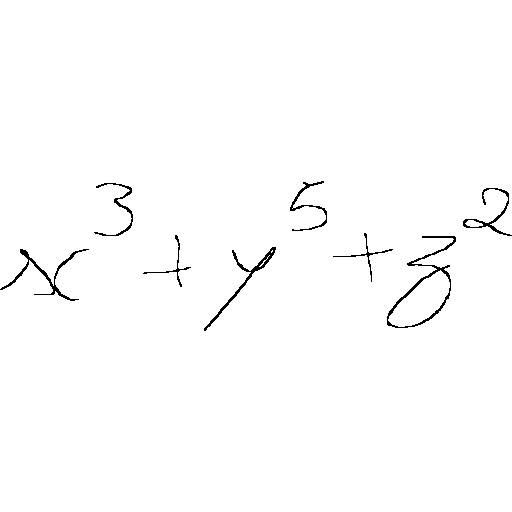 x³ + y⁵ + z²